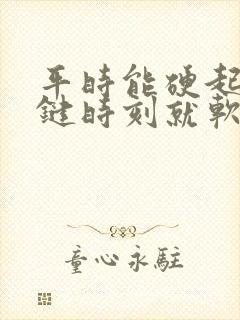 平時能硬起
鍵時刻就軟
童心永駐